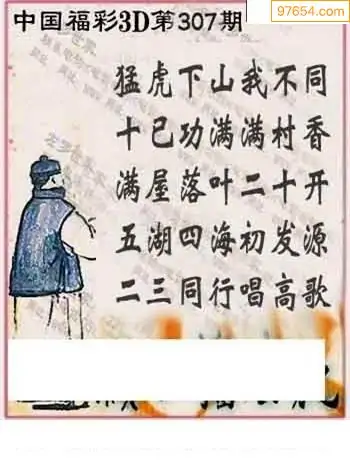 97654.com
中国福彩3D第307期
猛虎下山我不同
十已功满满村香
满屋落叶二十开
五湖四海初发源
二三同行唱高歌